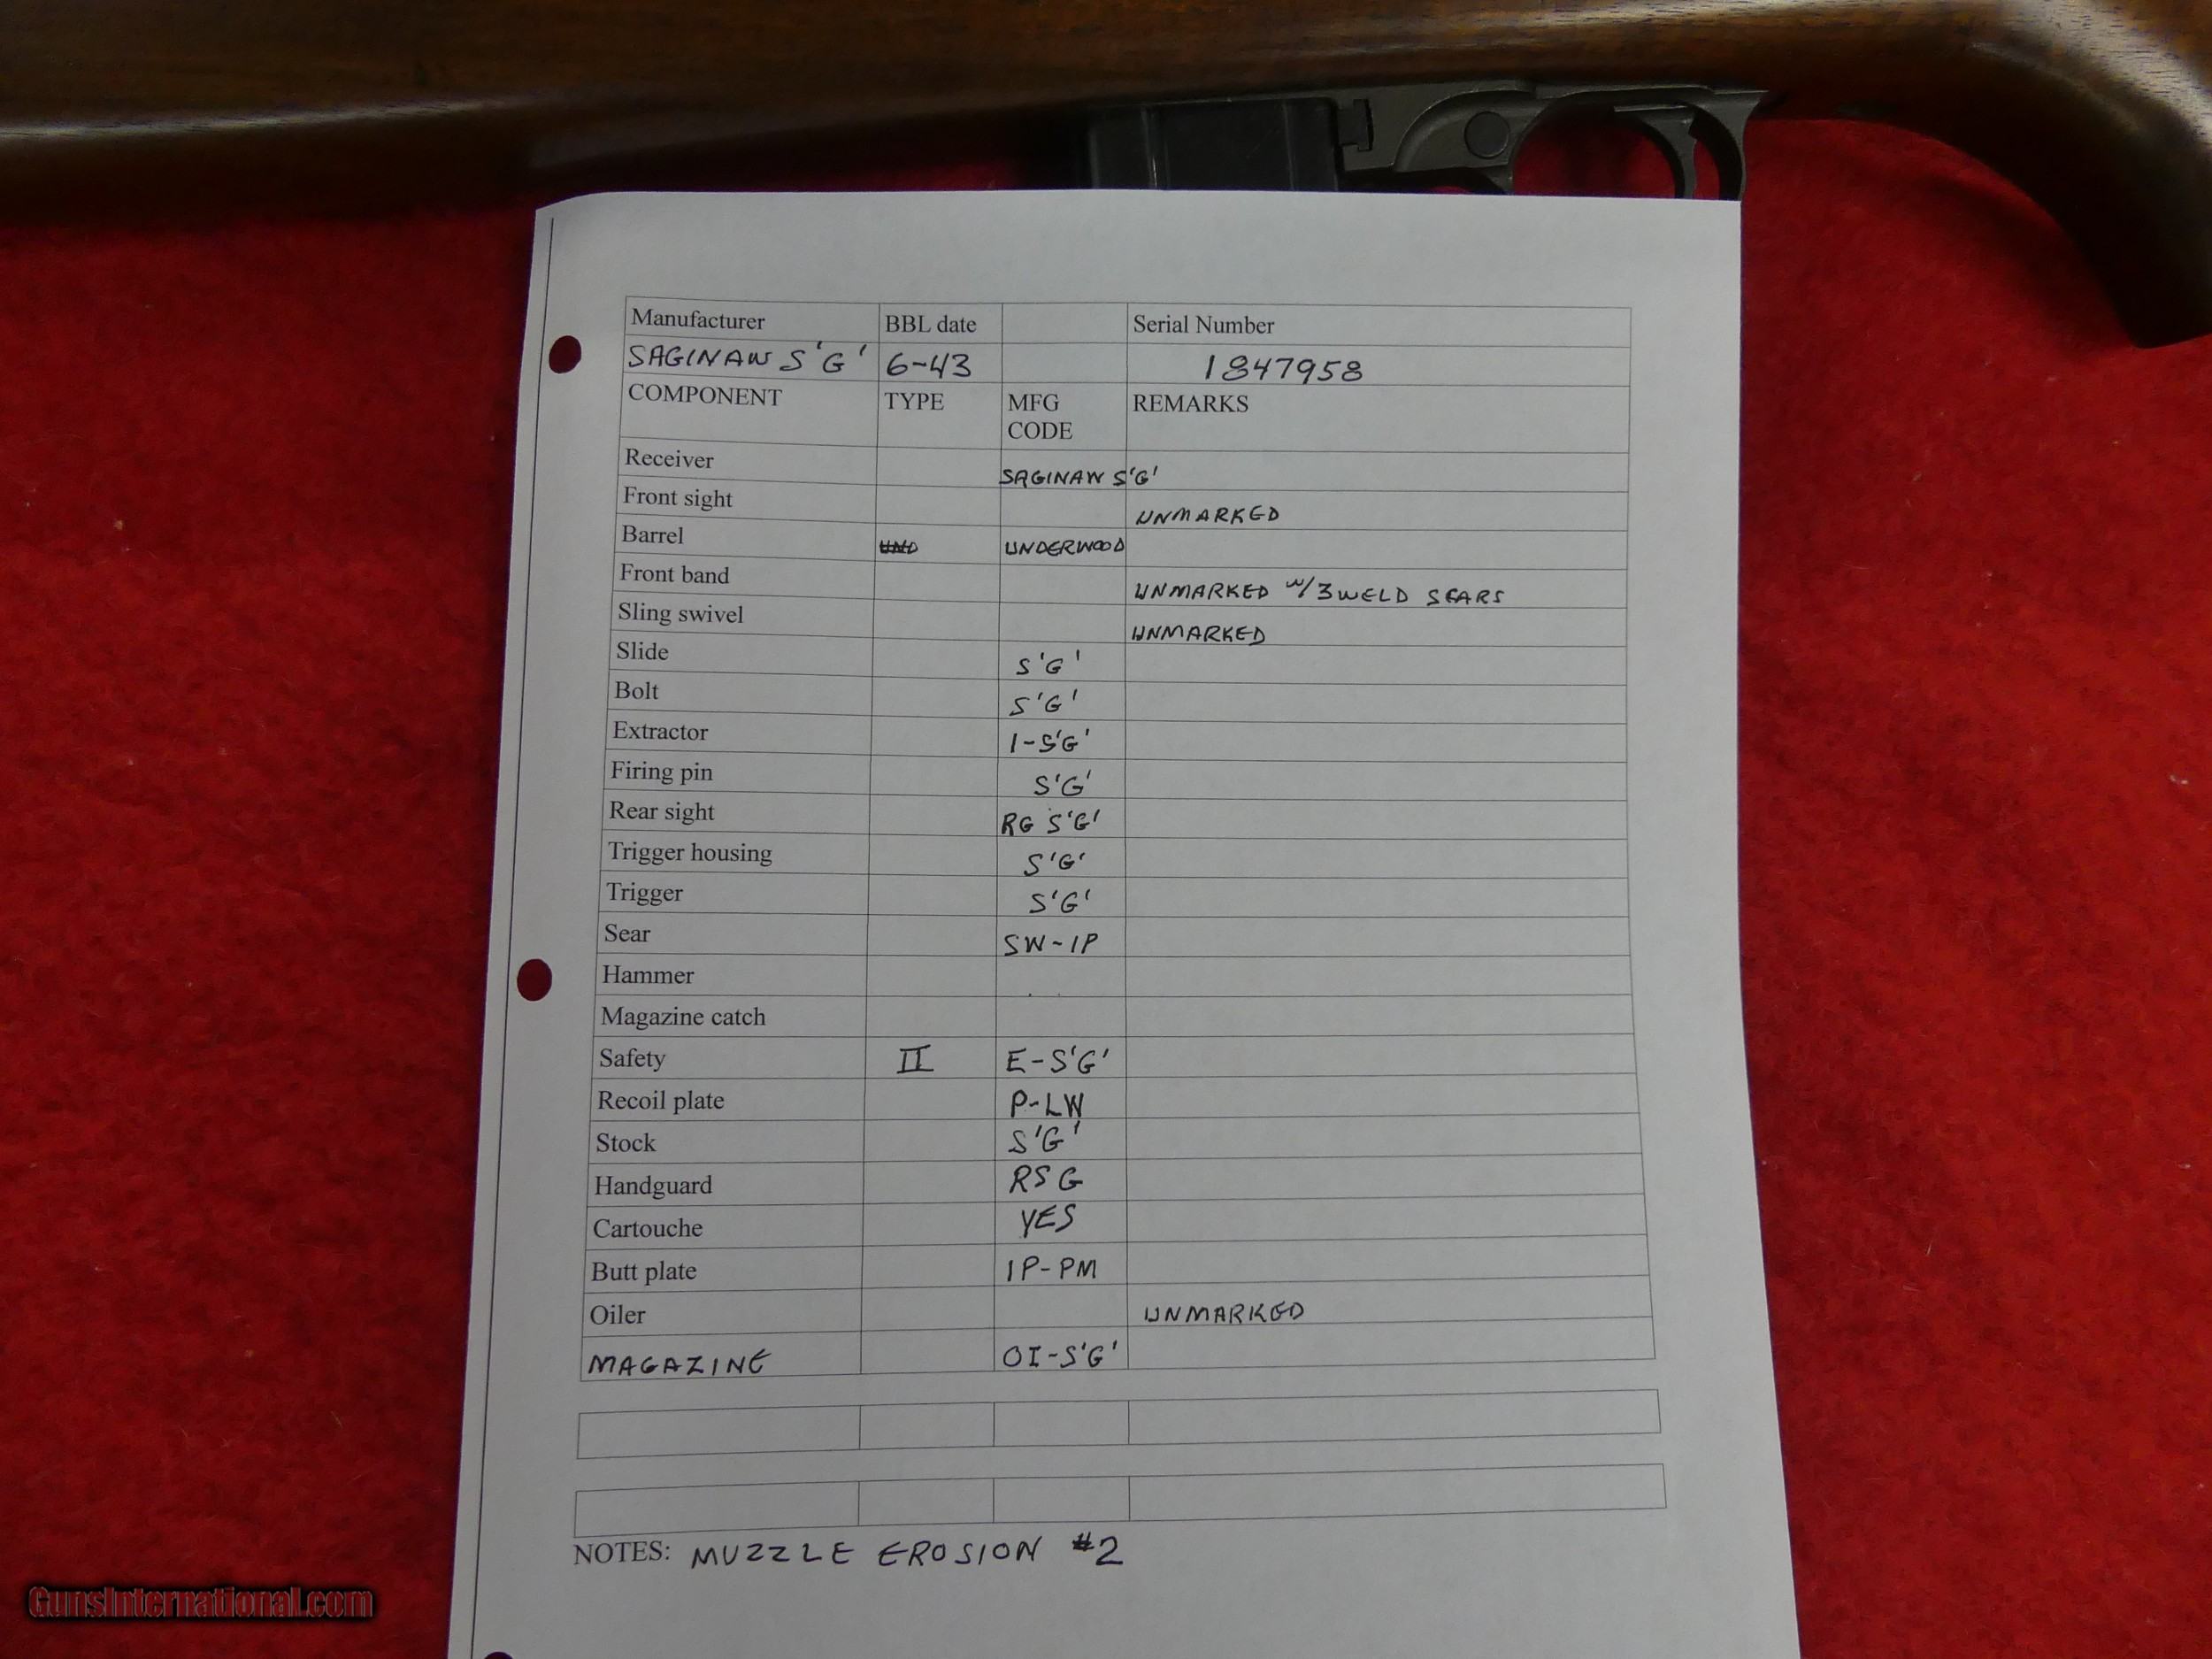 Manufacturer BBL date Serial Number
SAGINAW S'G' 6-43 1847958
COMPONENT TYPE MFG CODE REMARKS
Receiver SAGINAW S'G'
Front sight UNMARKED
Barrel UND UNDERWOOD
Front band UNMARKED w/3 WELD SEARS
Sling swivel UNMARKED
Slide S'G'
Bolt S'G'
Extractor I-S'G'
Firing pin S'G'
Rear sight RG S'G'
Trigger housing S'G'
Trigger S'G'
Sear SW-IP
Hammer
Magazine catch
Safety II E-S'G'
Recoil plate P-LW
Stock S'G'
Handguard RSG
Cartouche YES
Butt plate IP-PM
Oiler UNMARKED
MAGAZINE OI-S'G'
NOTES: MUZZLE EROSION #2
GunsInternational.com